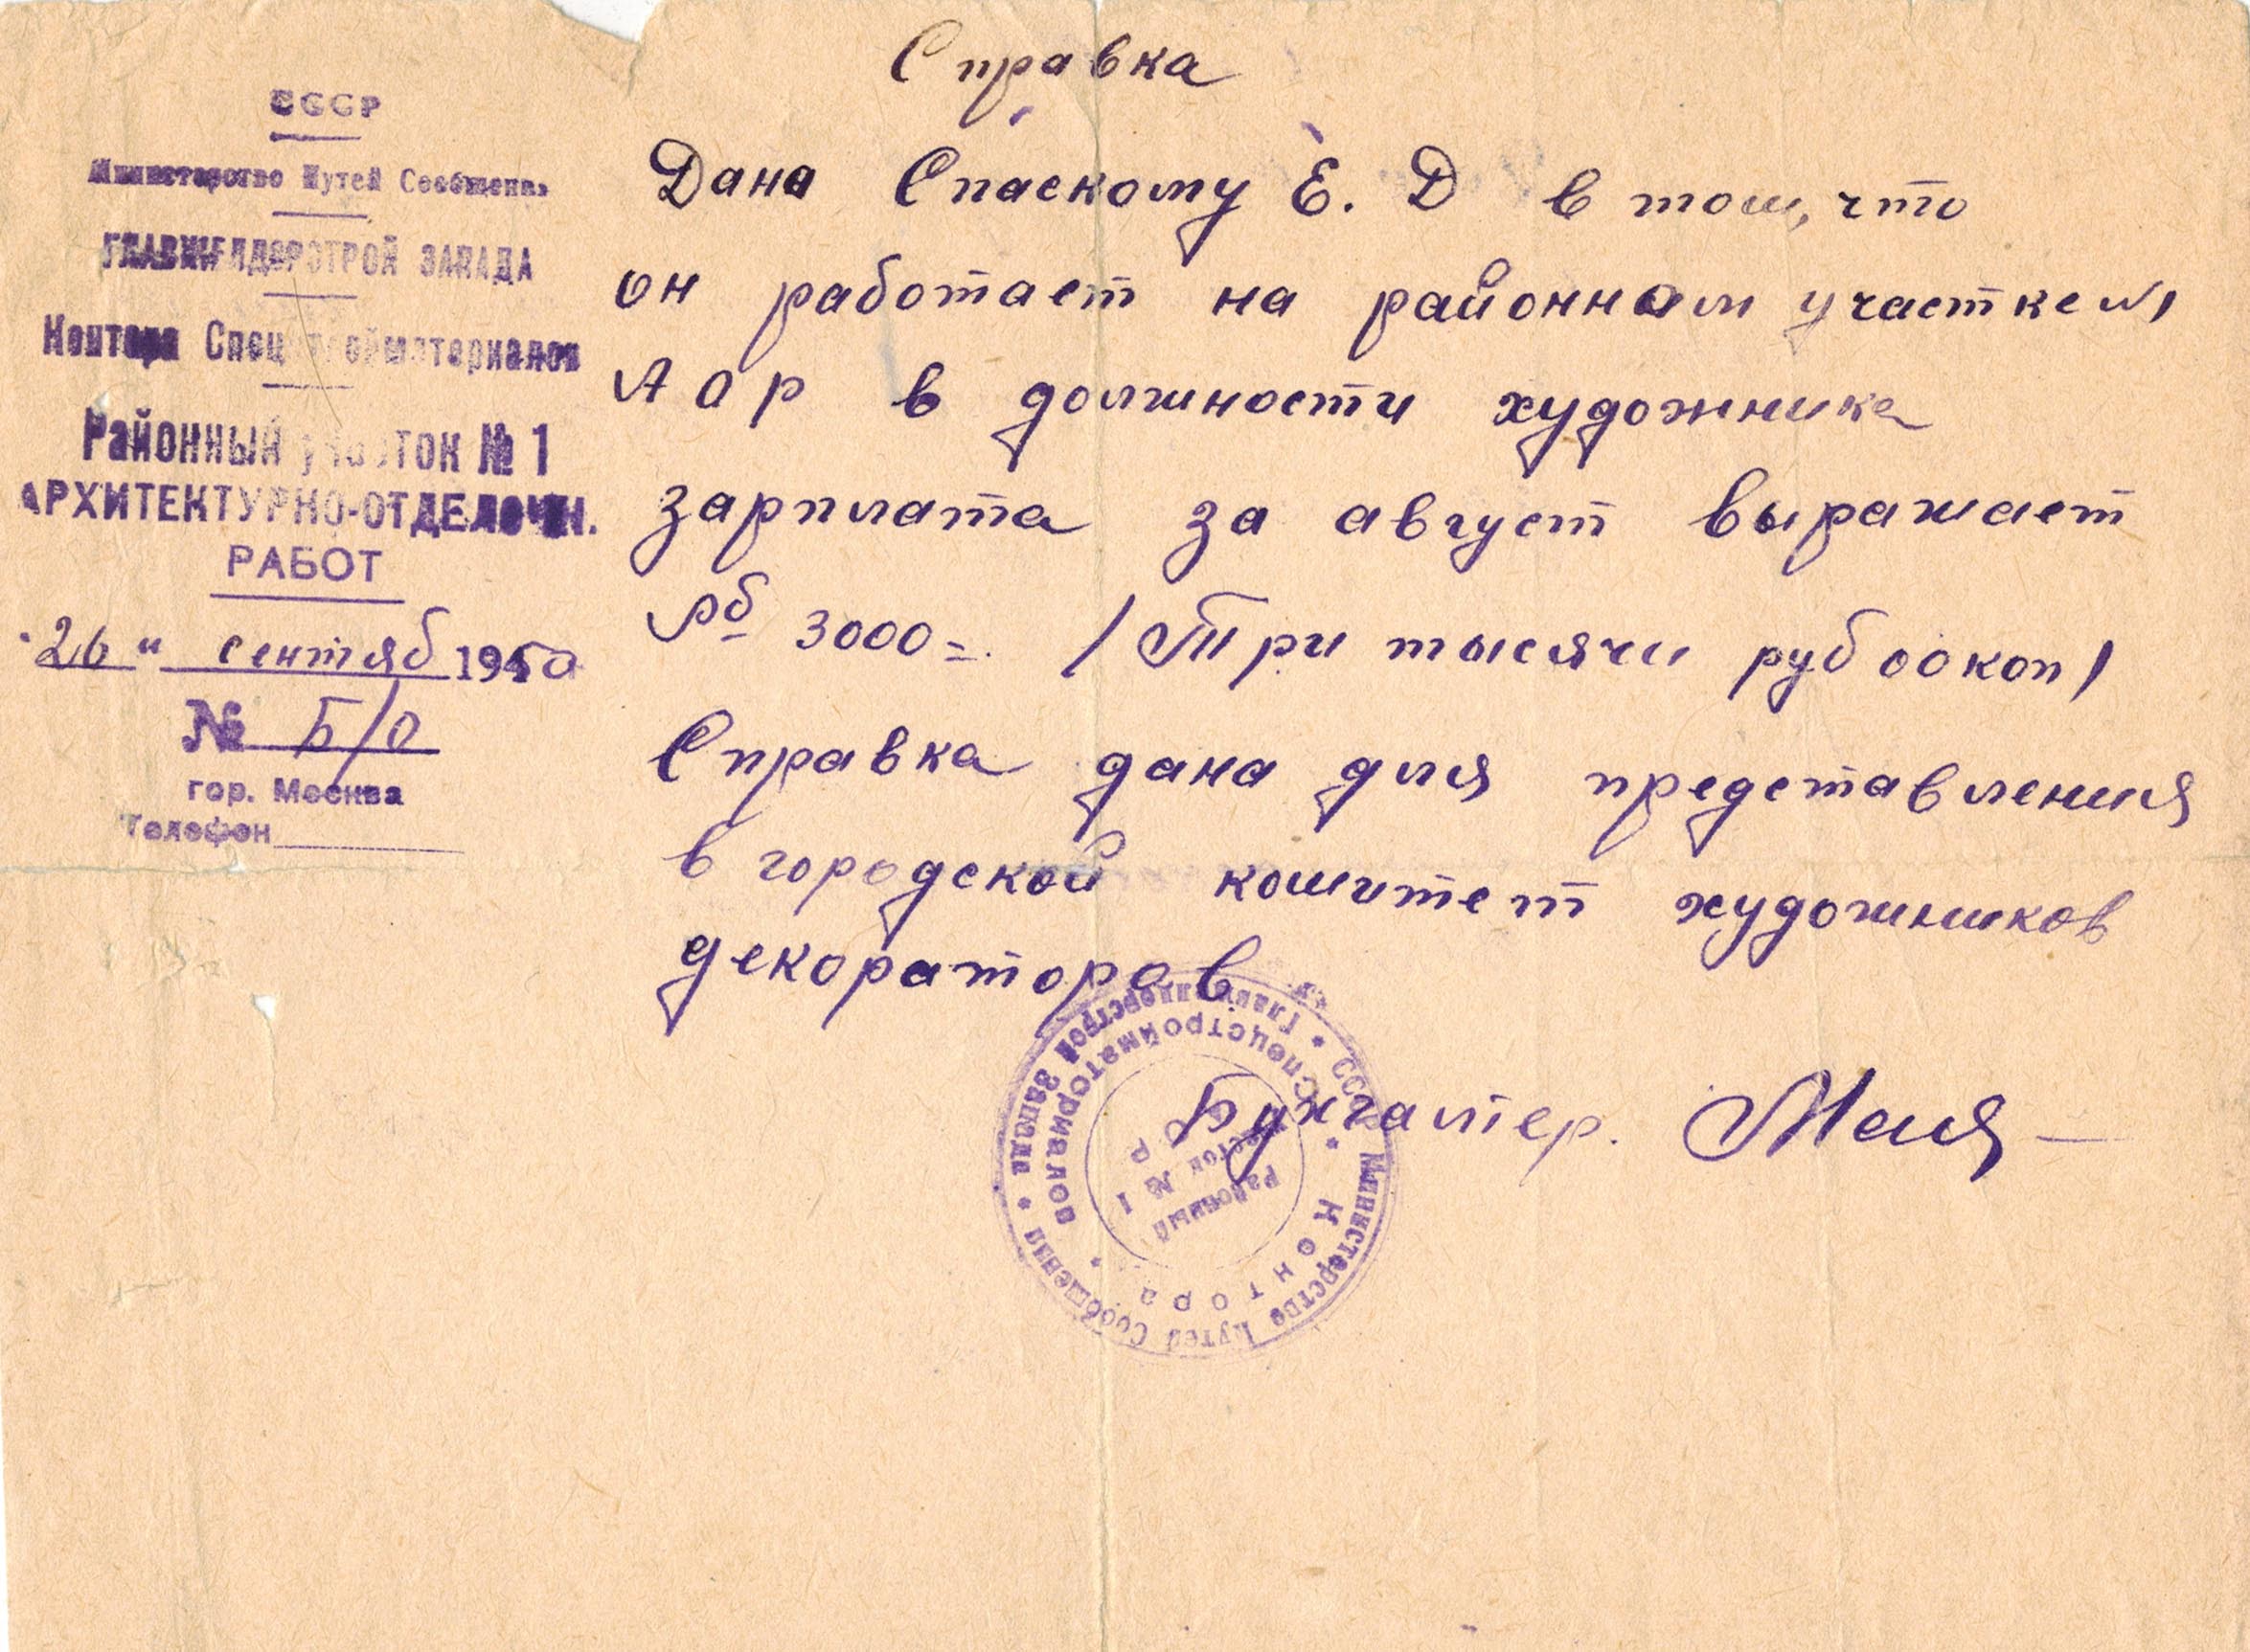 СССР
Министерство Путей Сообщения
ГЛАВЖЕЛДОРСТРОЙ ЗАПАДА
Контора Спецстройматериалов
Районный участок № 1
АРХИТЕКТУРНО-ОТДЕЛОЧН.
РАБОТ
"26" сентяб 1950
№ Б/О
гор. Москва
Телефон
Справка
Дана Спаскому Е. Д в том, что
он работает на районном участке №1
АОР в должности художника
зарплата за август выражает
рб 3000=. /Три тысячи руб 00 коп/
Справка дана для представления
в городской комитет художников
декораторов
Бухгалтер.
СССР * Министерство Путей Сообщения * Главжелдорстрой Запада *
Контора * Спецстройматериалов *
Районный
участок № 1
АОР